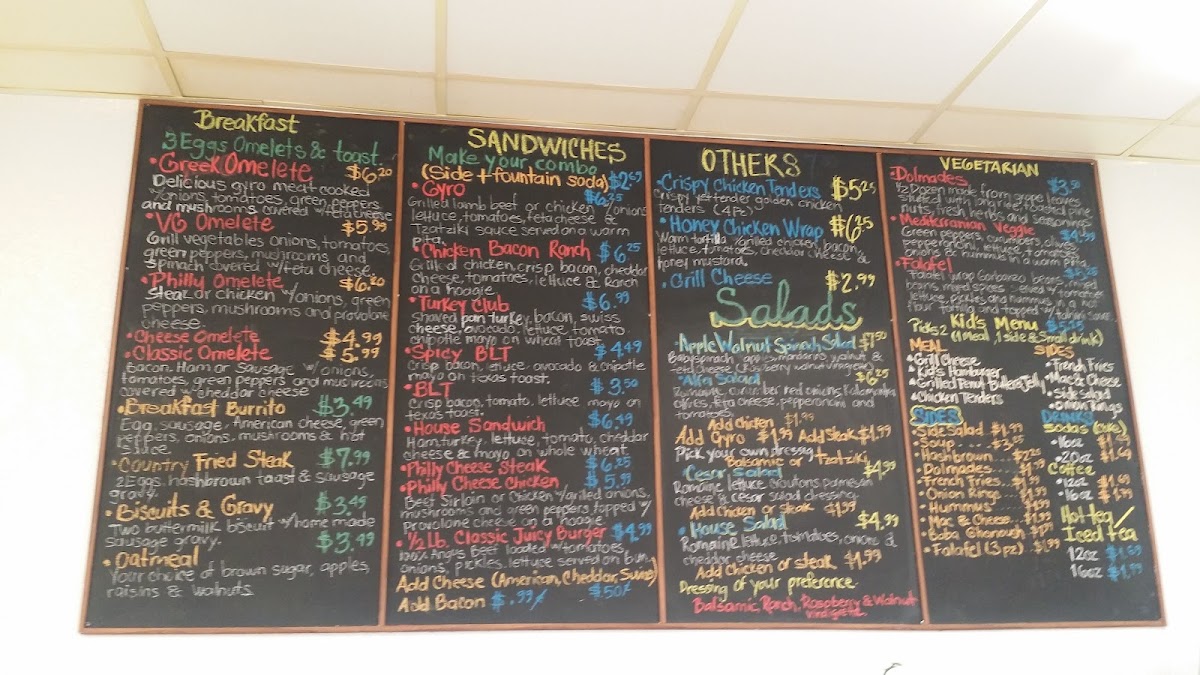 Breakfast
3 Eggs Omelets & toast
•Greek Omelete $6.20
Delicious gyro meat cooked
w/onions, tomatoes, green peppers
and mushrooms covered w/feta cheese
•VG Omelete $5.99
Grill vegetables onions, tomatoes,
green peppers, mushrooms and
spinach covered w/feta cheese.
•Philly Omelete $6.20
Steak or chicken w/onions, green
peppers, mushrooms and provolone
cheese
•Cheese Omelete $4.99
•Classic Omelete $5.99
Bacon, Ham or Sausage w/onions,
tomatoes, green peppers and mushrooms
covered w/cheddar cheese
•Breakfast Burrito $3.49
Egg, sausage, American cheese, green
peppers, onions, mushrooms & hot
sauce.
•Country Fried Steak $7.99
2 Eggs, hashbrown toast & sausage
gravy.
•Biscuits & Gravy $3.45
Two buttermilk biscuit w/home made
sausage gravy. $3.49
•Oatmeal
Your choice of brown sugar, apples,
raisins & walnuts.
SANDWICHES
Make your combo
(Side + fountain soda) $2.69
•Gyro $6.25
Grilled lamb beef or chicken w/onions
lettuce, tomatoes, feta cheese &
Tzatziki sauce served on a warm
pita.
•Chicken Bacon Ranch $6.25
Grilled chicken, crisp bacon, cheddar
cheese, tomatoes, lettuce & Ranch
on a hoagie
•Turkey Club $6.99
Shaved pan turkey, bacon, swiss
cheese, avocado, lettuce, tomato
chipotle mayo on wheat toast
•Spicy BLT $4.49
Crisp bacon, lettuce, avocado & chipotle
mayo on texas toast.
•BLT $3.50
Crisp bacon, tomato, lettuce mayo on
texas toast.
•House Sandwich $6.49
Ham, turkey, lettuce, tomato, cheddar
cheese & mayo on whole wheat
•Philly Cheese Steak $6.25
•Philly Cheese Chicken $5.99
Beef Sirloin or Chicken w/grilled onions,
mushrooms and green peppers topped w/
provolone cheese on a hoagie
•1/2 Lb. Classic Juicy Burger $4.99
100% Angus Beef loaded w/tomatoes,
onions, pickles, lettuce served on bun
Add Cheese (American, Cheddar, Swiss)
Add Bacon $.99/ $.50/
OTHERS
•Crispy Chicken Tenders $5.25
Crispy yet tender golden chicken
tenders (4 Pc)
•Honey Chicken Wrap $6.25
Warm tortilla w/grilled chicken, bacon,
lettuce, tomatoes, cheddar cheese &
honey mustard.
•Grill Cheese $2.99
Salads
•Apple Walnut Spinach Salad $7.50
Baby spinach, apples, mandarins, walnut &
feta cheese (Raspberry walnut vinaigrette)
•Alka Salad $6.25
Romaine, cucumber, red onions, Kalamata
olives, feta cheese, pepperoncini and
tomatoes.
Add chicken $1.99
Add Gyro $1.99 Add Steak $1.99
Pick your own dressing
Balsamic or Tzatziki
•Cesar Salad $4.99
Romaine lettuce, croutons, parmesan
cheese & cesar salad dressing.
Add Chicken or steak $1.99
•House Salad $4.99
Romaine lettuce, tomatoes, onions &
cheddar cheese
Add chicken or steak $1.99
Dressing of your preference.
Balsamic, Ranch, Raspberry & Walnut
vinaigrette
VEGETARIAN
•Dolmades $3.50
1/2 Dozen made from grape leaves
stuffed with long rice, toasted pine
nuts, fresh herbs and seasoning
•Mediterranian Veggie $4.99
Green peppers, cucumbers, olives,
pepperoncini, lettuce, tomatoes,
onions & hummus in a warm pita
•Falafel
Falafel wrap Garbanzo beans, fried
beans, mixed spices served w/tomatoes
lettuce, pickles and hummus in a
flour tortilla and topped w/tahini sauce
Kid's Menu $5.25
(1 Meal, 1 side & Small drink)
MEAL
•Grill Cheese
•Kid's Hamburger
•Grilled Penut Butter & Jelly
•Chicken Tenders
SIDES
•French Fries
•Mac & Cheese
•Side salad
•Onion Rings
SIDES
•Side Salad $1.99
•Soup
•Hashbrown
•Dolmades
•French Fries
•Onion Rings
•Hummus
•Mac & Cheese
•Baba Ghanough
•Falafel (3 pz) $1.99
DRINKS
Sodas
•16oz
•20oz $1.69
Coffee
•12oz $1.69
•16oz $1.99
Hot tea/
Iced tea
12oz $1.69
16oz $1.99